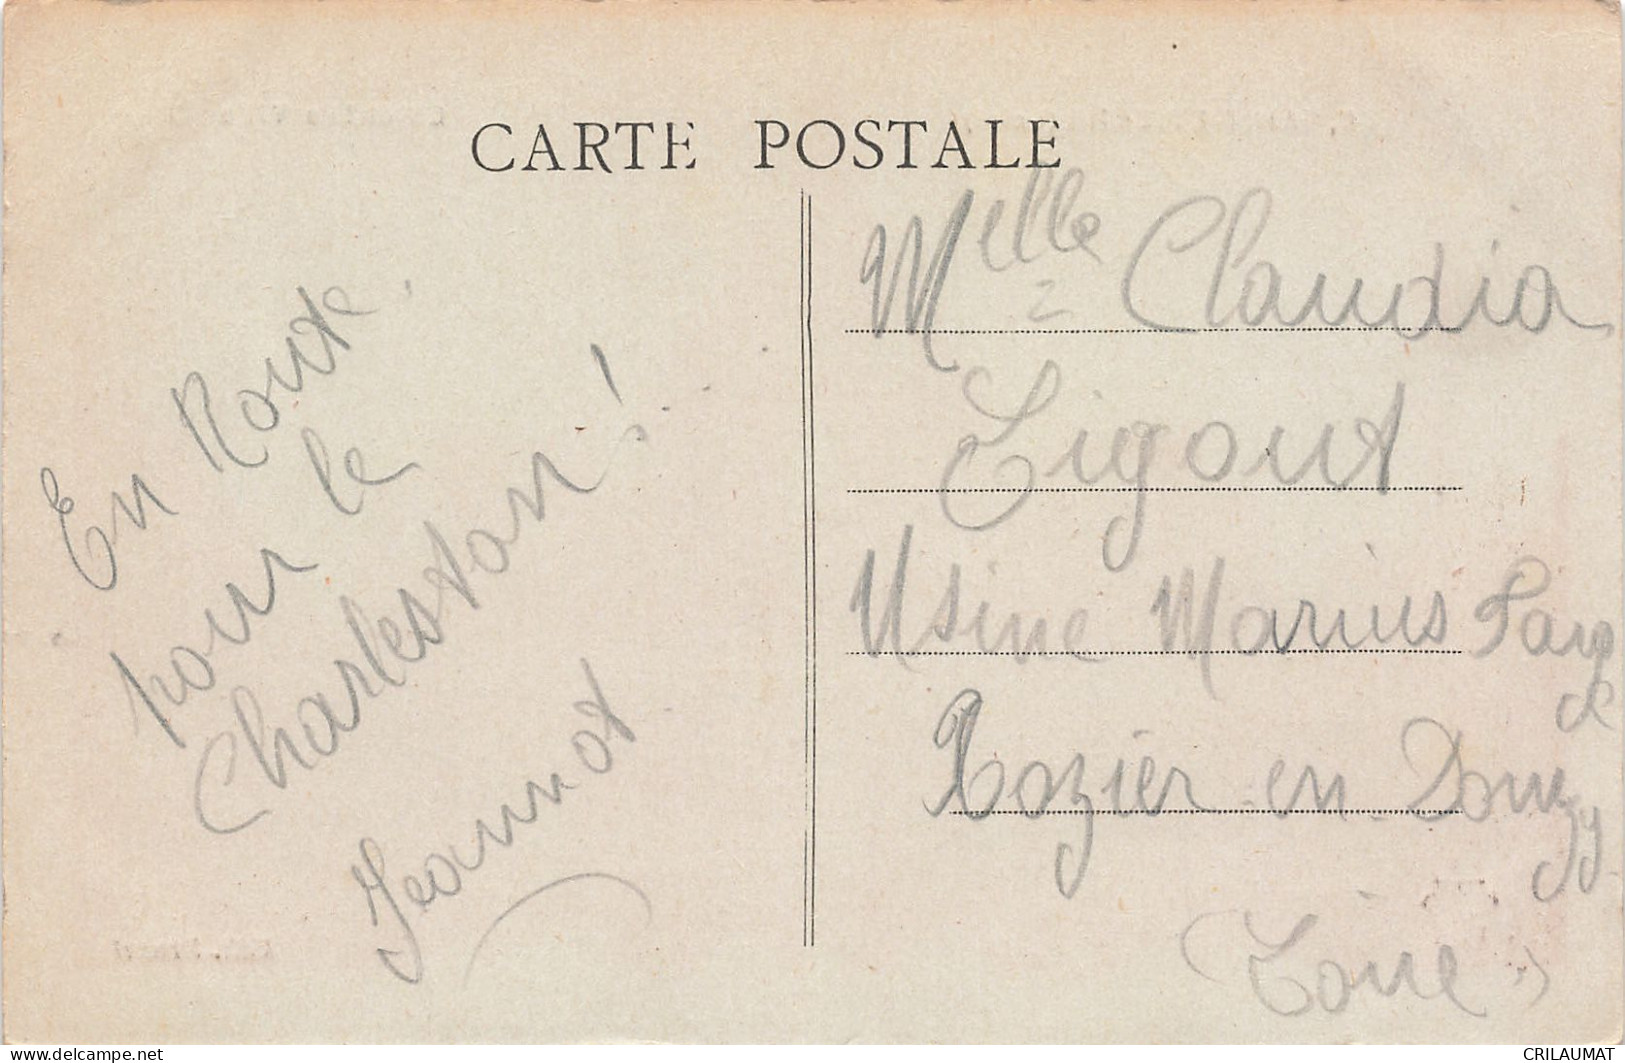 CARTE POSTALE
En Route
pour le
Charleston !
Jeannot
Melle Claudia
Ligout
Usine Marius
Rozier-en-Donzy
(Loire)
delcampe.net
CRILAUMAT